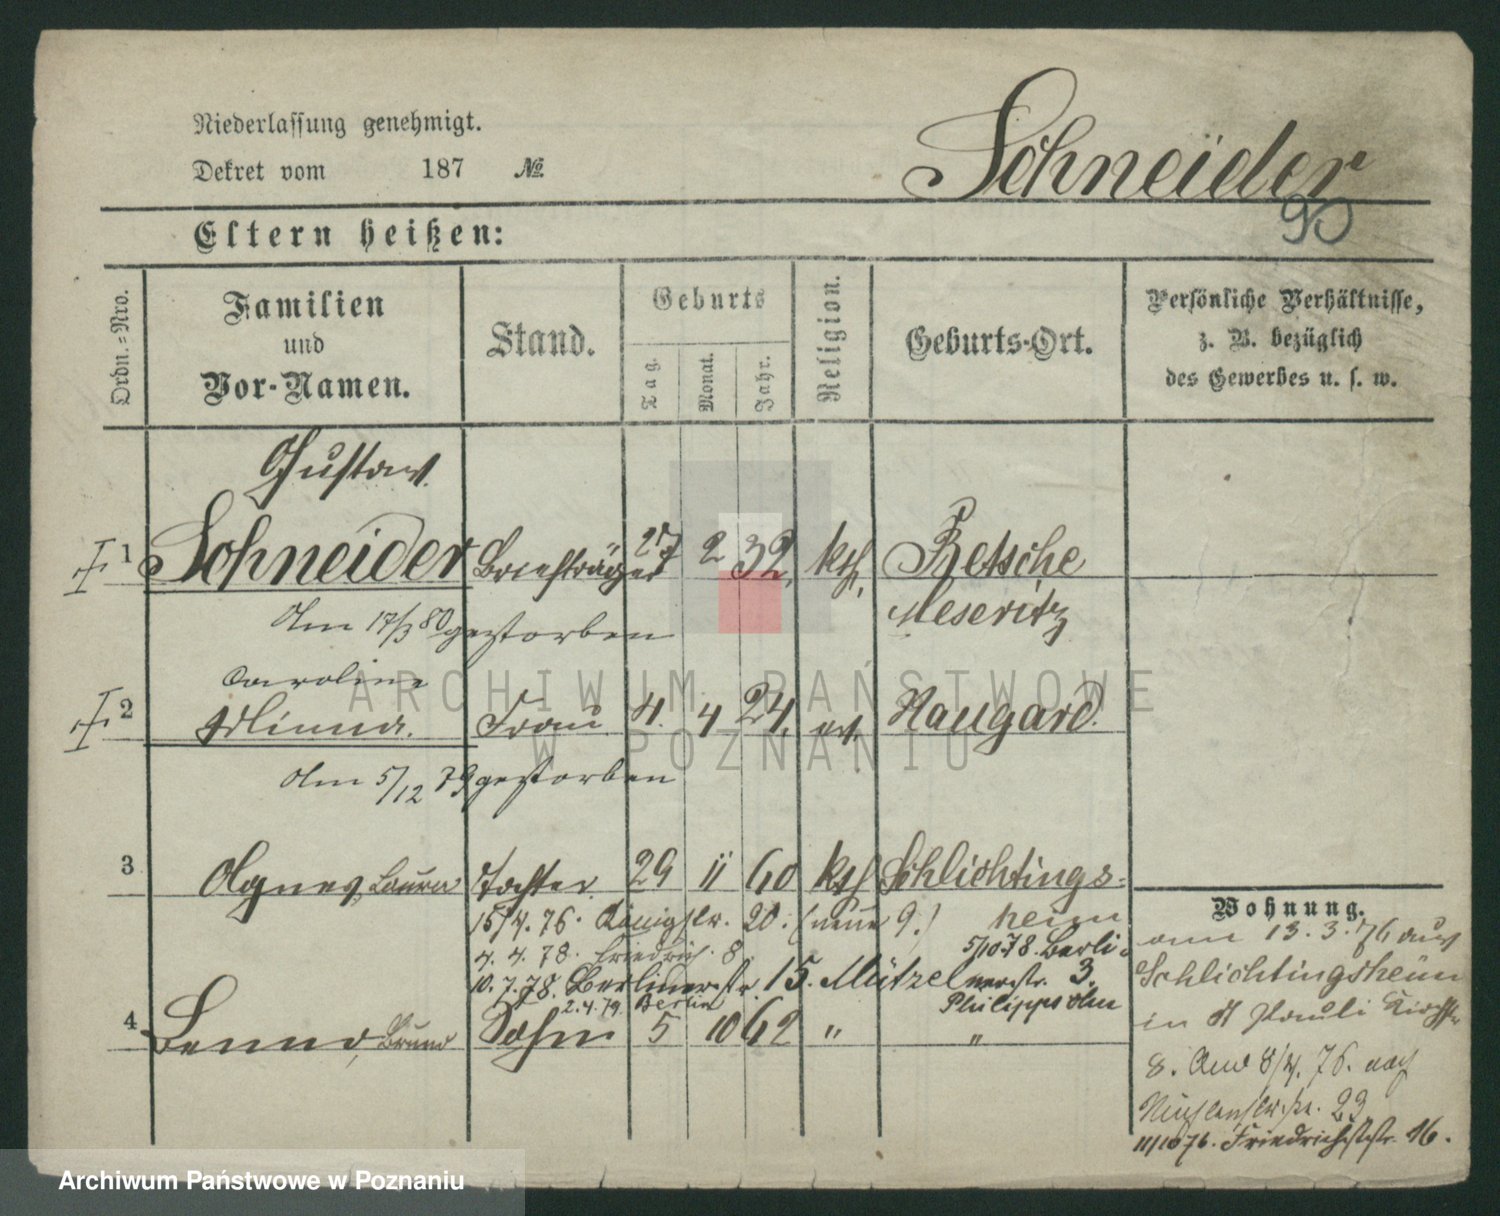 Niederlassung genehmigt.
Dekret vom 187 №
Schneider
90
Eltern heißen:
Ordn.=Nro.
Familien
und
Vor-Namen.
Stand.
Geburts
Tag.
Monat.
Jahr.
Religion.
Geburts-Ort.
Persönliche Verhältnisse,
z. B. bezüglich
des Gewerbes u. s. w.
Gustav
1 Schneider Briefträger 27 2 32, kth, Betsche
Meseritz
Am 17/3 80 gestorben
Caroline
2 Minna. Frau 4. 4 24, ev. Naugard.
Am 5/12 79 gestorben
3 Agnes, Laura Tochter 29 11 60 kth Schlichtings=
heim
15/4. 76. Königstr. 20. (neue 9.)
4. 4. 78. Friedrich. 8.
5/10 78. Berli-
nerstr. 3.
10. 7. 78. Berlinerstr. 15. Mützel
2. 4. 79. Berlin
Philippsohn
4 Benno, Bruno Sohn 5 10 62 " "
Wohnung.
am 13. 3. 76 aus
Schlichtingsheim
in St Pauli Kirchstr
8. Am 8/4. 76. nach
23
11/10 76. Friedrichstr. 16.
ARCHIWUM PAŃSTWOWE
W POZNANIU
Archiwum Państwowe w Poznaniu